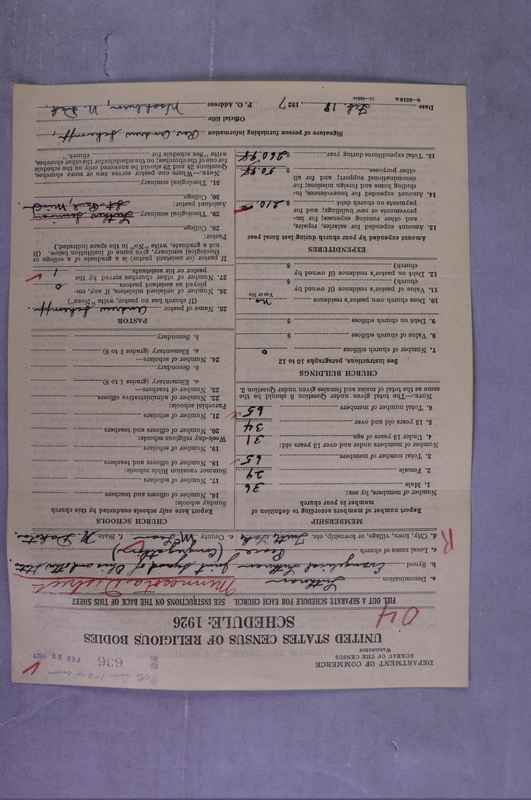 DEPARTMENT OF COMMERCE
BUREAU OF THE CENSUS
WASHINGTON
636
FEB 23 1927
UNITED STATES CENSUS OF RELIGIOUS BODIES
SCHEDULE: 1926
04
FILL OUT A SEPARATE SCHEDULE FOR EACH CHURCH. SEE INSTRUCTIONS ON THE BACK OF THIS SHEET
a. Denomination Lutheran Minnesota District
b. Synod Evangelical Lutheran Joint Synod of Ohio and
c. Local name of church (Congregation)
d. City, town, village, or township, etc. Turtle Lake e. County McLean f. State N. Dakota
R
MEMBERSHIP
Report number of members according to definition of member in your church
Number of members, by sex:
1. Male 36
2. Female 29
3. Total number of members 65
Number of members under and over 13 years old:
4. Under 13 years of age 31
5. 13 years old and over 34
6. Total number of members 65
NOTE.—The total given under Question 6 should be the same as the total of males and females given under Question 3.
CHURCH BUILDINGS
See instructions, paragraphs 10 to 12
7. Number of church edifices 0
8. Value of church edifices $
9. Debt on church edifices $
10. Does church own pastor's residence no.
Yes or No
11. Value of pastor's residence (if owned by church) $
12. Debt on pastor's residence (if owned by church) $
EXPENDITURES
Amount expended by your church during last fiscal year
13. Amount expended for salaries, repairs, and other running expenses; for improvements or new building; and for payments on church debt $210.
14. Amount expended for benevolences, including home and foreign missions; for denominational support; and for all other purposes 50.98
15. Total expenditures during year $260.98
CHURCH SCHOOLS
Report here only schools conducted by this church
Sunday schools:
16. Number of officers and teachers
17. Number of scholars
Summer vacation Bible schools:
18. Number of officers and teachers
19. Number of scholars
Week-day religious schools:
20. Number of officers and teachers
21. Number of scholars
Parochial schools:
22. Number of administrative officers
23. Number of teachers—
a. Elementary (grades 1 to 8)
b. Secondary
24. Number of scholars—
a. Elementary (grades 1 to 8)
b. Secondary
PASTOR
25. Name of pastor Andrew Schempp
(If church has no pastor, write "None")
26. Number of ordained ministers, if any, employed as assistants to pastor 0
27. Number of other churches served by the pastor or his assistants 1
If pastor (or assistant pastor) is a graduate of a college or theological seminary, give name of institution below. (If not a graduate, write "No" in the space indicated.)
Pastor:
28. College
29. Theological seminary Luther Seminary St. Paul, Minn.
Assistant pastor:
30. College
31. Theological seminary
NOTE.—Where one pastor serves two or more churches, Questions 25 and 26 should be answered only on the schedule for one of the churches; on the schedules for the other churches, write "See schedule for church."
Signature of person furnishing information Rev. Andrew Schempp,
Official title
Date Feb. 18, 1927 P. O. Address Washburn, N. Dak.